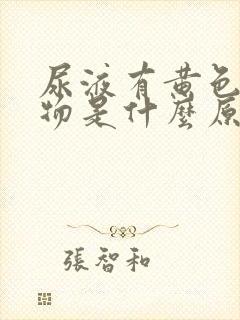 尿液有黄色
物是什麼原
張智和